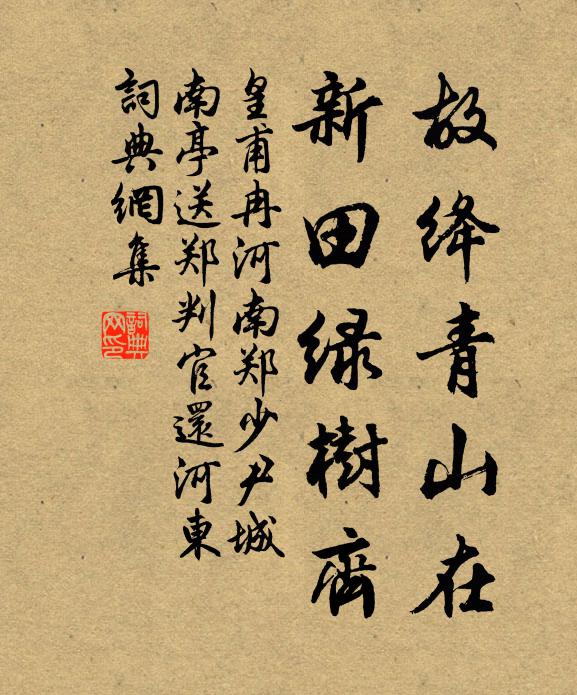 故绛青山在
新田绿樹齊
皇甫冉河南郑少尹城
南亭送郑判官還河東
詞典網集
詞典网印